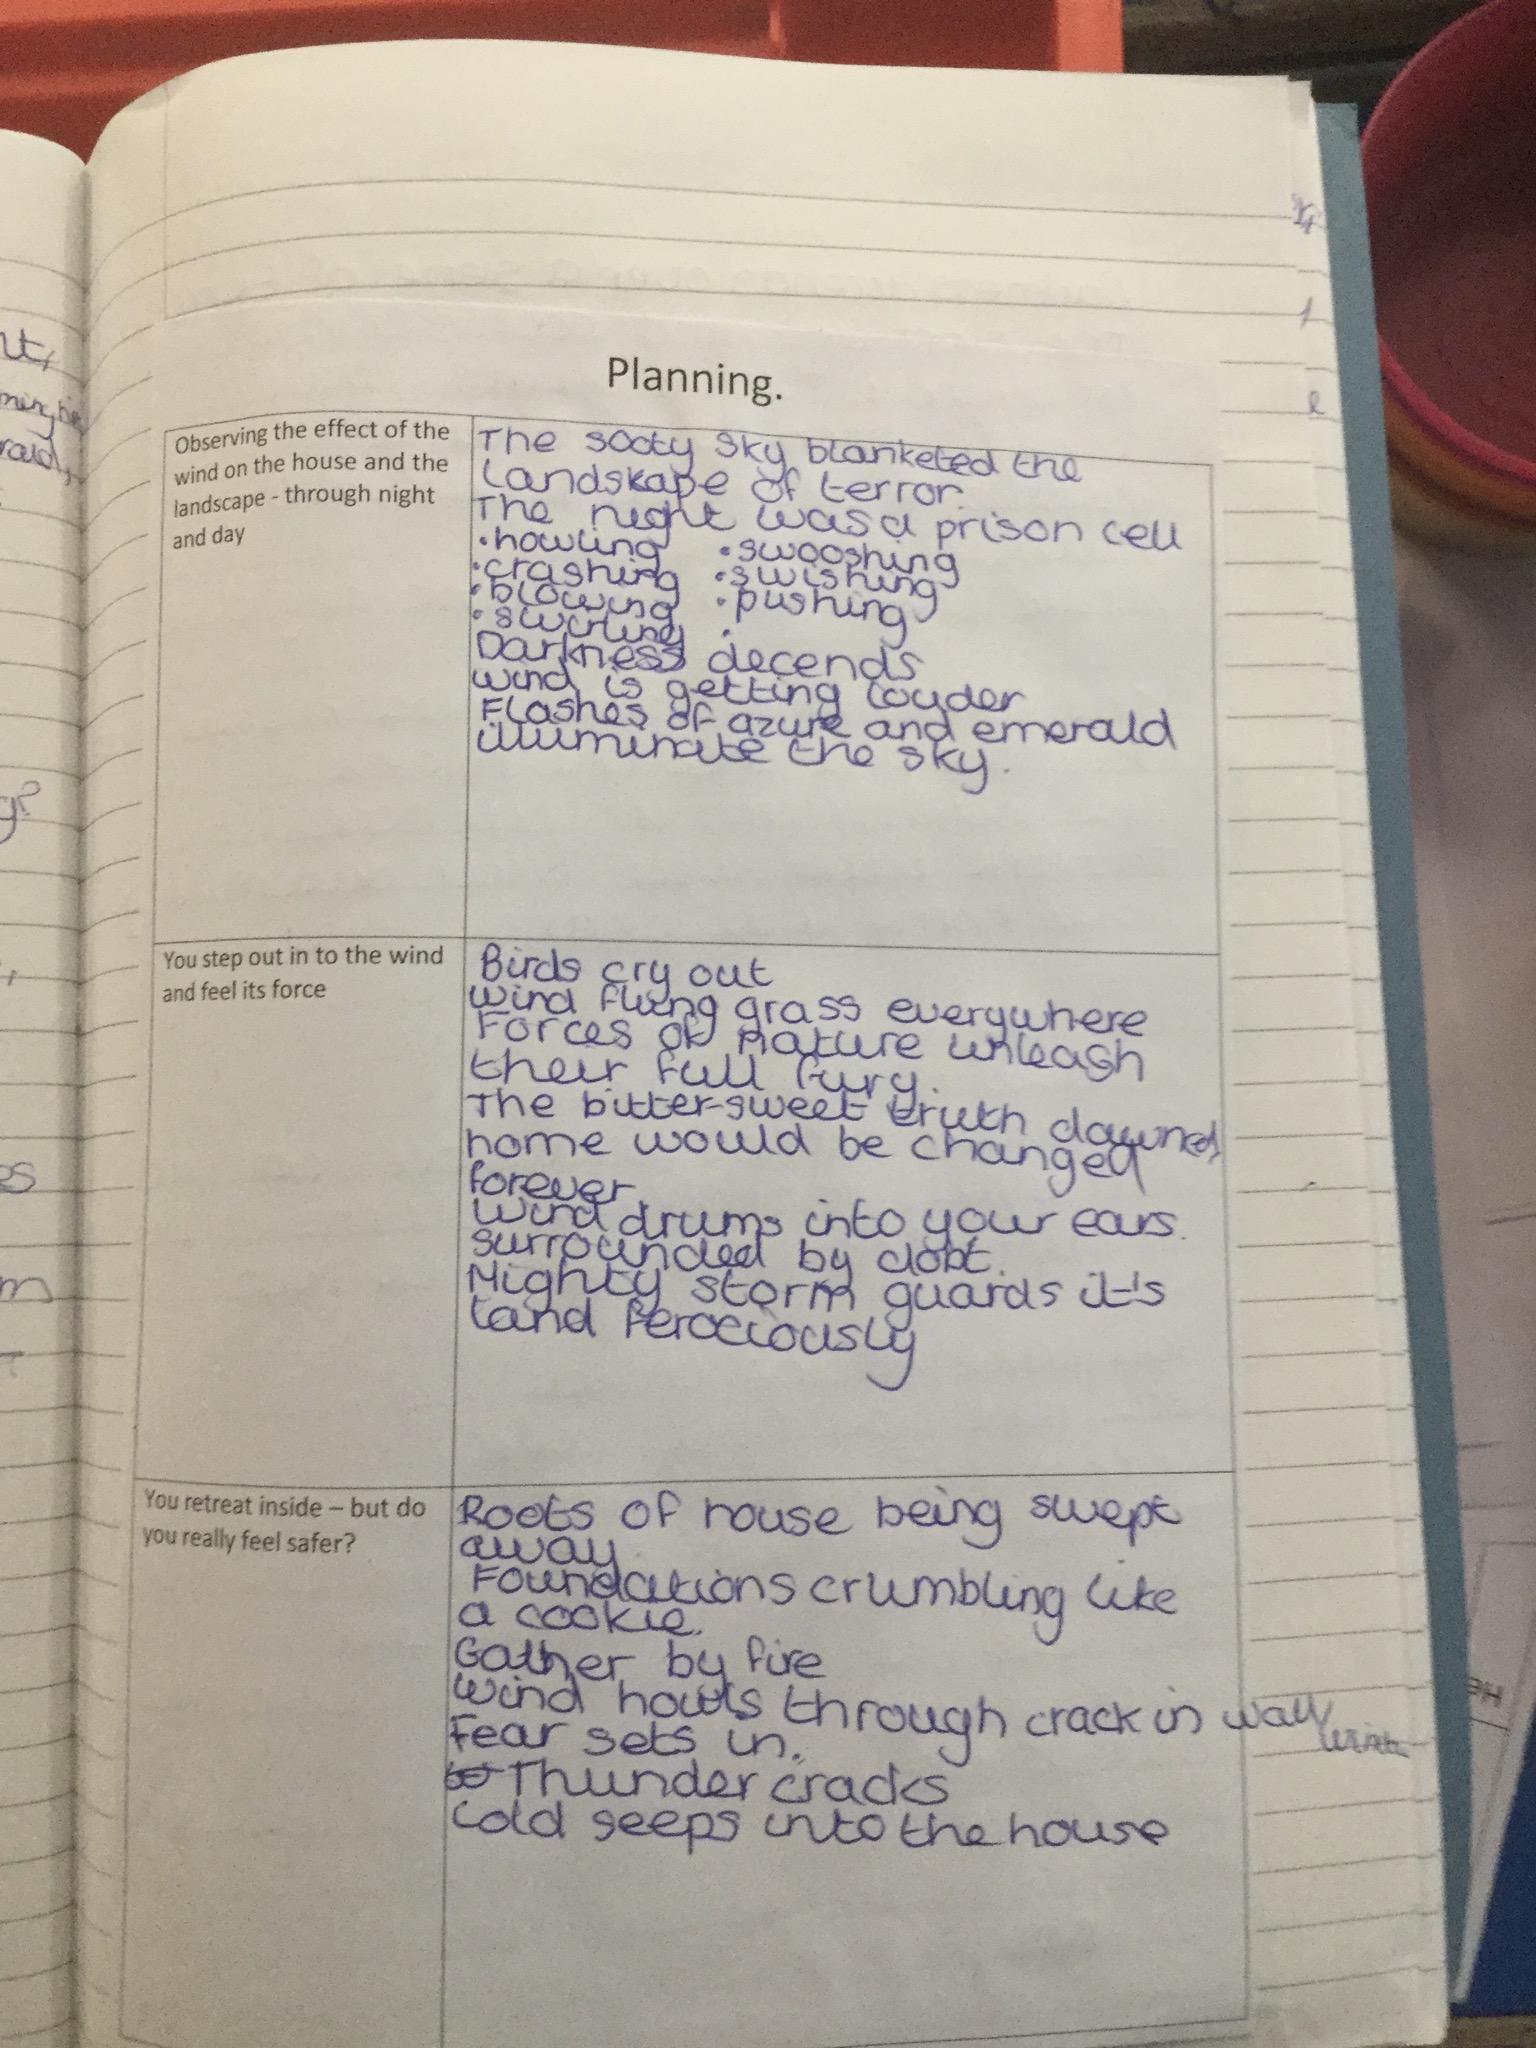 Planning.
Observing the effect of the
wind on the house and the
landscape - through night
and day
The sooty sky blanketed the
landskape of terror.
The night was a prison cell
• howling • swooshing
• crashing • swishing
• blowing • pushing
• swirling •
Darkness decends
wind is getting louder
Flashes of azure and emerald
illuminate the sky.
You step out in to the wind
and feel its force
Birds cry out
wind flung grass everywhere
Forces of nature unleash
their full fury.
The bitter-sweet truth dawned,
home would be changed
forever
wind drums into your ears.
surrounded by dobt.
Mighty storm guards it's
land ferociously
You retreat inside – but do
you really feel safer?
Roots of house being swept
away.
Foundations crumbling like
a cookie.
Gather by fire
wind howls through crack in wall
Fear sets in.
Thunder cracks
Cold seeps into the house